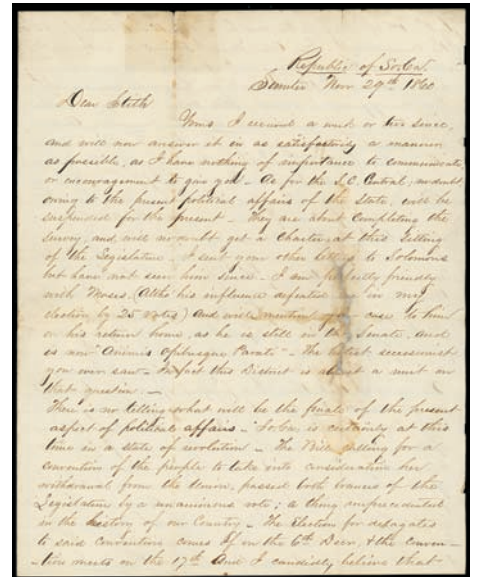 Republic of So.Ca.
Sumter Nov 29th 1860
Dear Stith
Yours I received a week or two since,
and will now answer it in as satisfactorily a manner
as possible, as I have nothing of importance to communicate
or encouragement to give you - As for the S.C. Central, no doubt
owing to the present political affairs of the State, will be
suspended for the present - They are about completing the
survey, and will no doubt get a Charter, at this Setting
of the Legislature. I sent your other letter to Solomons
but have not seen him since - I am perfectly friendly
with Moses, (Altho his influence defeated in my
election by 25 votes) and will mention your case to him
on his return home, as he is still in the Senate, and
is now "Animis Opibusque Parati" - The secessionist
you ever saw - In fact this District is a unit on
that question -
There is no telling what will be the finale of the present
aspect of political affairs - So.Ca. is certainly at this
time in a state of revolution - The Bill calling for a
convention of the people to take into consideration her
withdrawal from the Union, passed both branches of the
Legislature by a unanimous vote; a thing unprecedented
in the history of our Country - The Election for delegates
to said Convention comes off on the 6th Decr, & the conven
-tion meets on the 17th And I candidly believe that